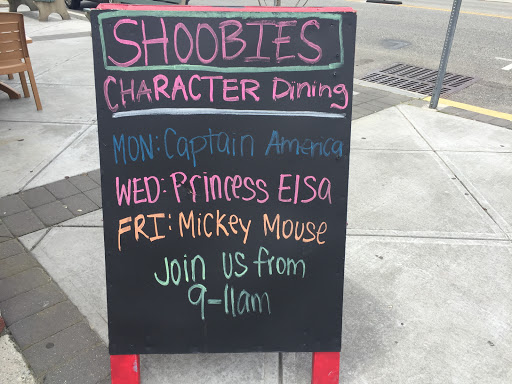 SHOOBIES
CHARACTER Dining
MON: Captain America
WED: Princess Elsa
FRI: Mickey Mouse
Join us from
9-11am